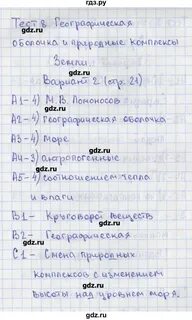 Тест 8. Географическая
оболочка и природные комплексы
Земли.
Вариант 2 (стр. 21)
А1-4) М.В. Ломоносов
А2-4) географическая оболочка
А3-4) море
А4-3) антропогенные
А5-4) соотношением тепла
и влаги
В1- Круговорот веществ
В2- Географическая
С1- Смена природных
комплексов с изменением
высоты над уровнем моря.